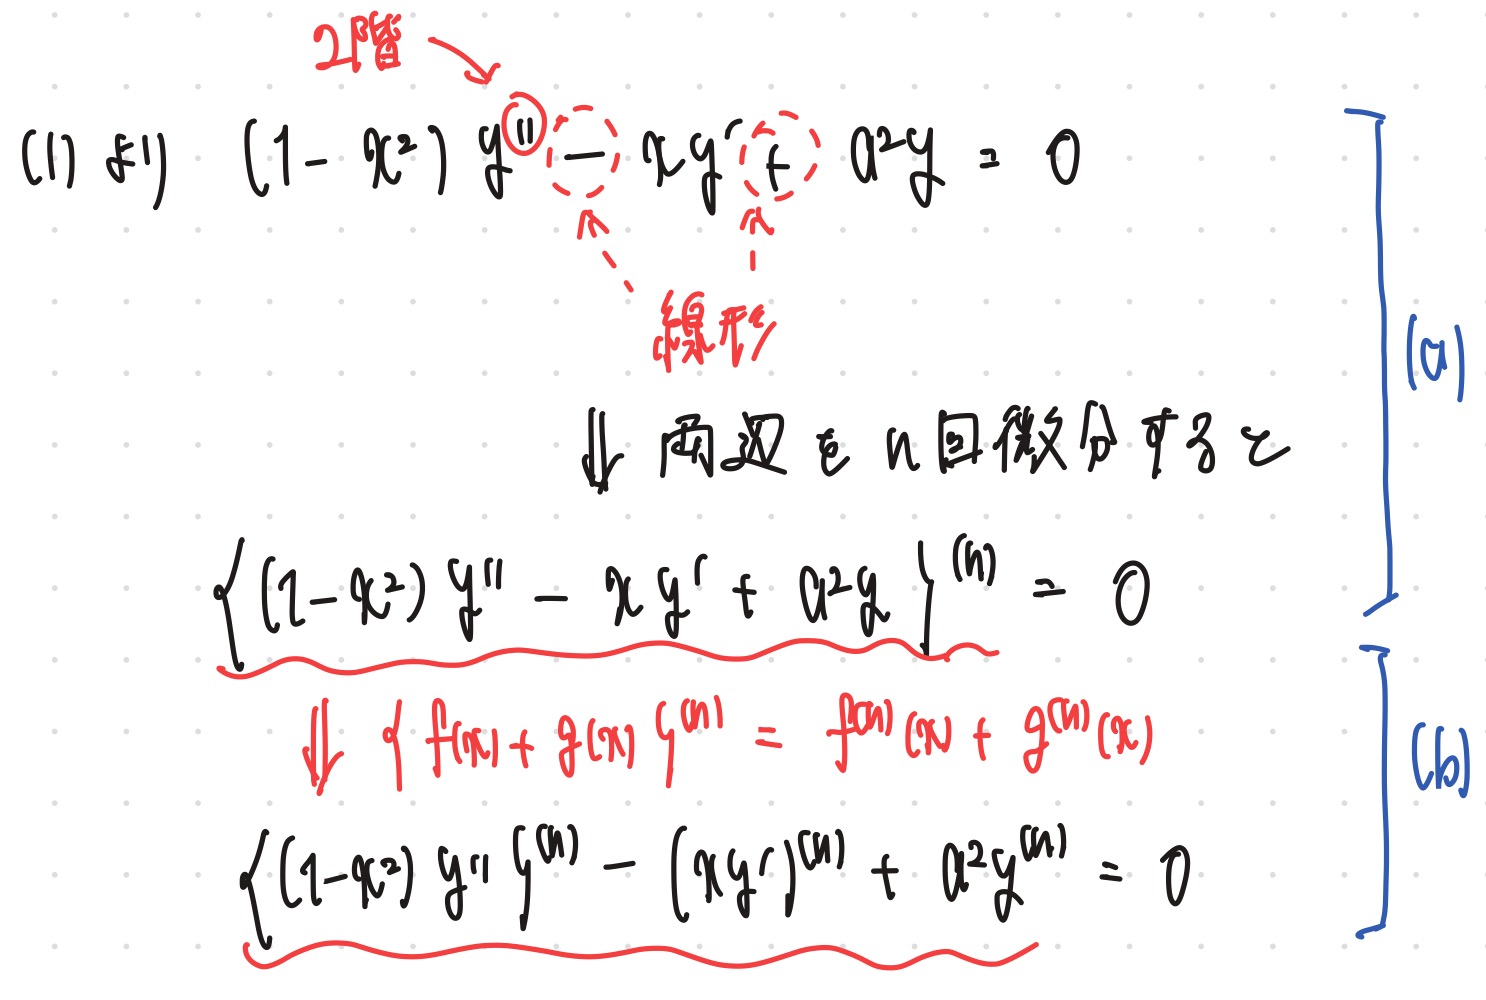 2階
(1) より (1-x²) y'' - xy' + a²y = 0
線形
(a)
⇓ 両辺をn回微分すると
{(1-x²) y'' - xy' + a²y}⁽ⁿ⁾ = 0
⇓ {f(x) + g(x)}⁽ⁿ⁾ = f⁽ⁿ⁾(x) + g⁽ⁿ⁾(x)
(b)
{(1-x²) y''}⁽ⁿ⁾ - (xy')⁽ⁿ⁾ + a²y⁽ⁿ⁾ = 0